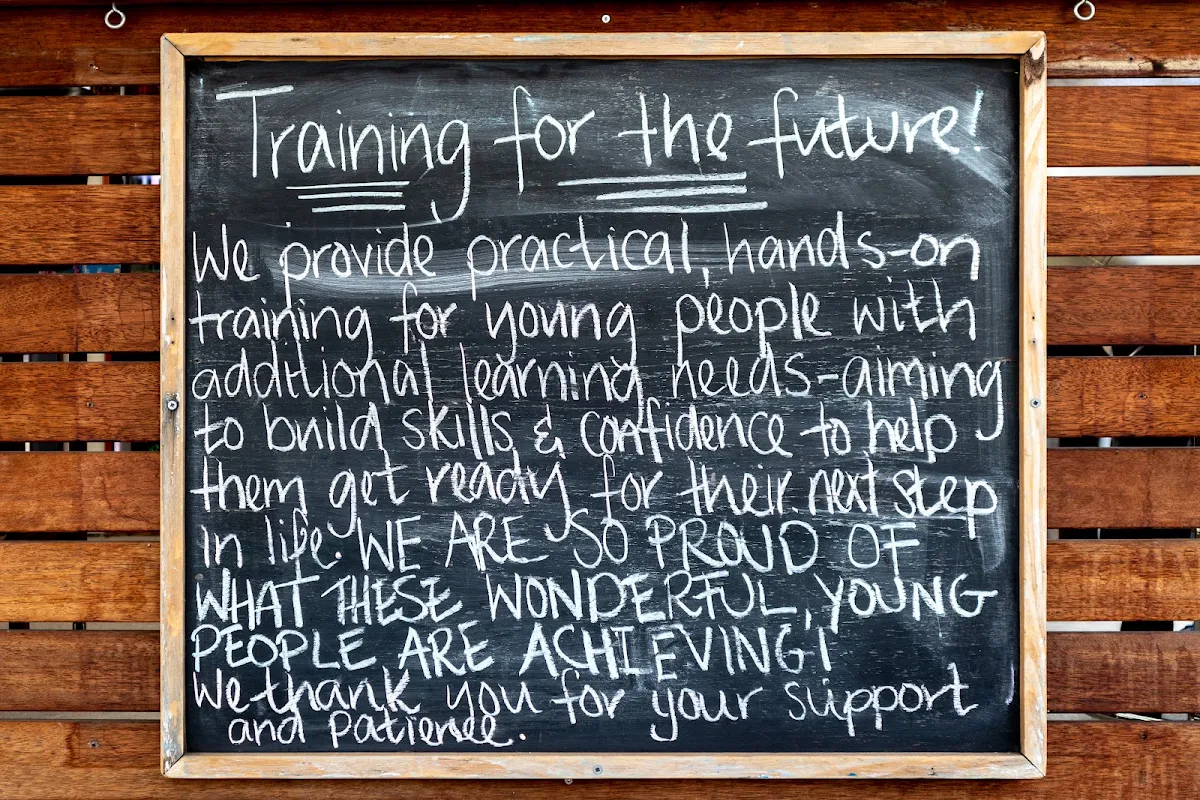 Training for the future!
We provide practical, hands-on
training for young people with
additional learning needs-aiming
to build skills & confidence to help
them get ready for their next step
in life. WE ARE SO PROUD OF
WHAT THESE WONDERFUL, YOUNG
PEOPLE ARE ACHIEVING!
We thank you for your support
and patience.